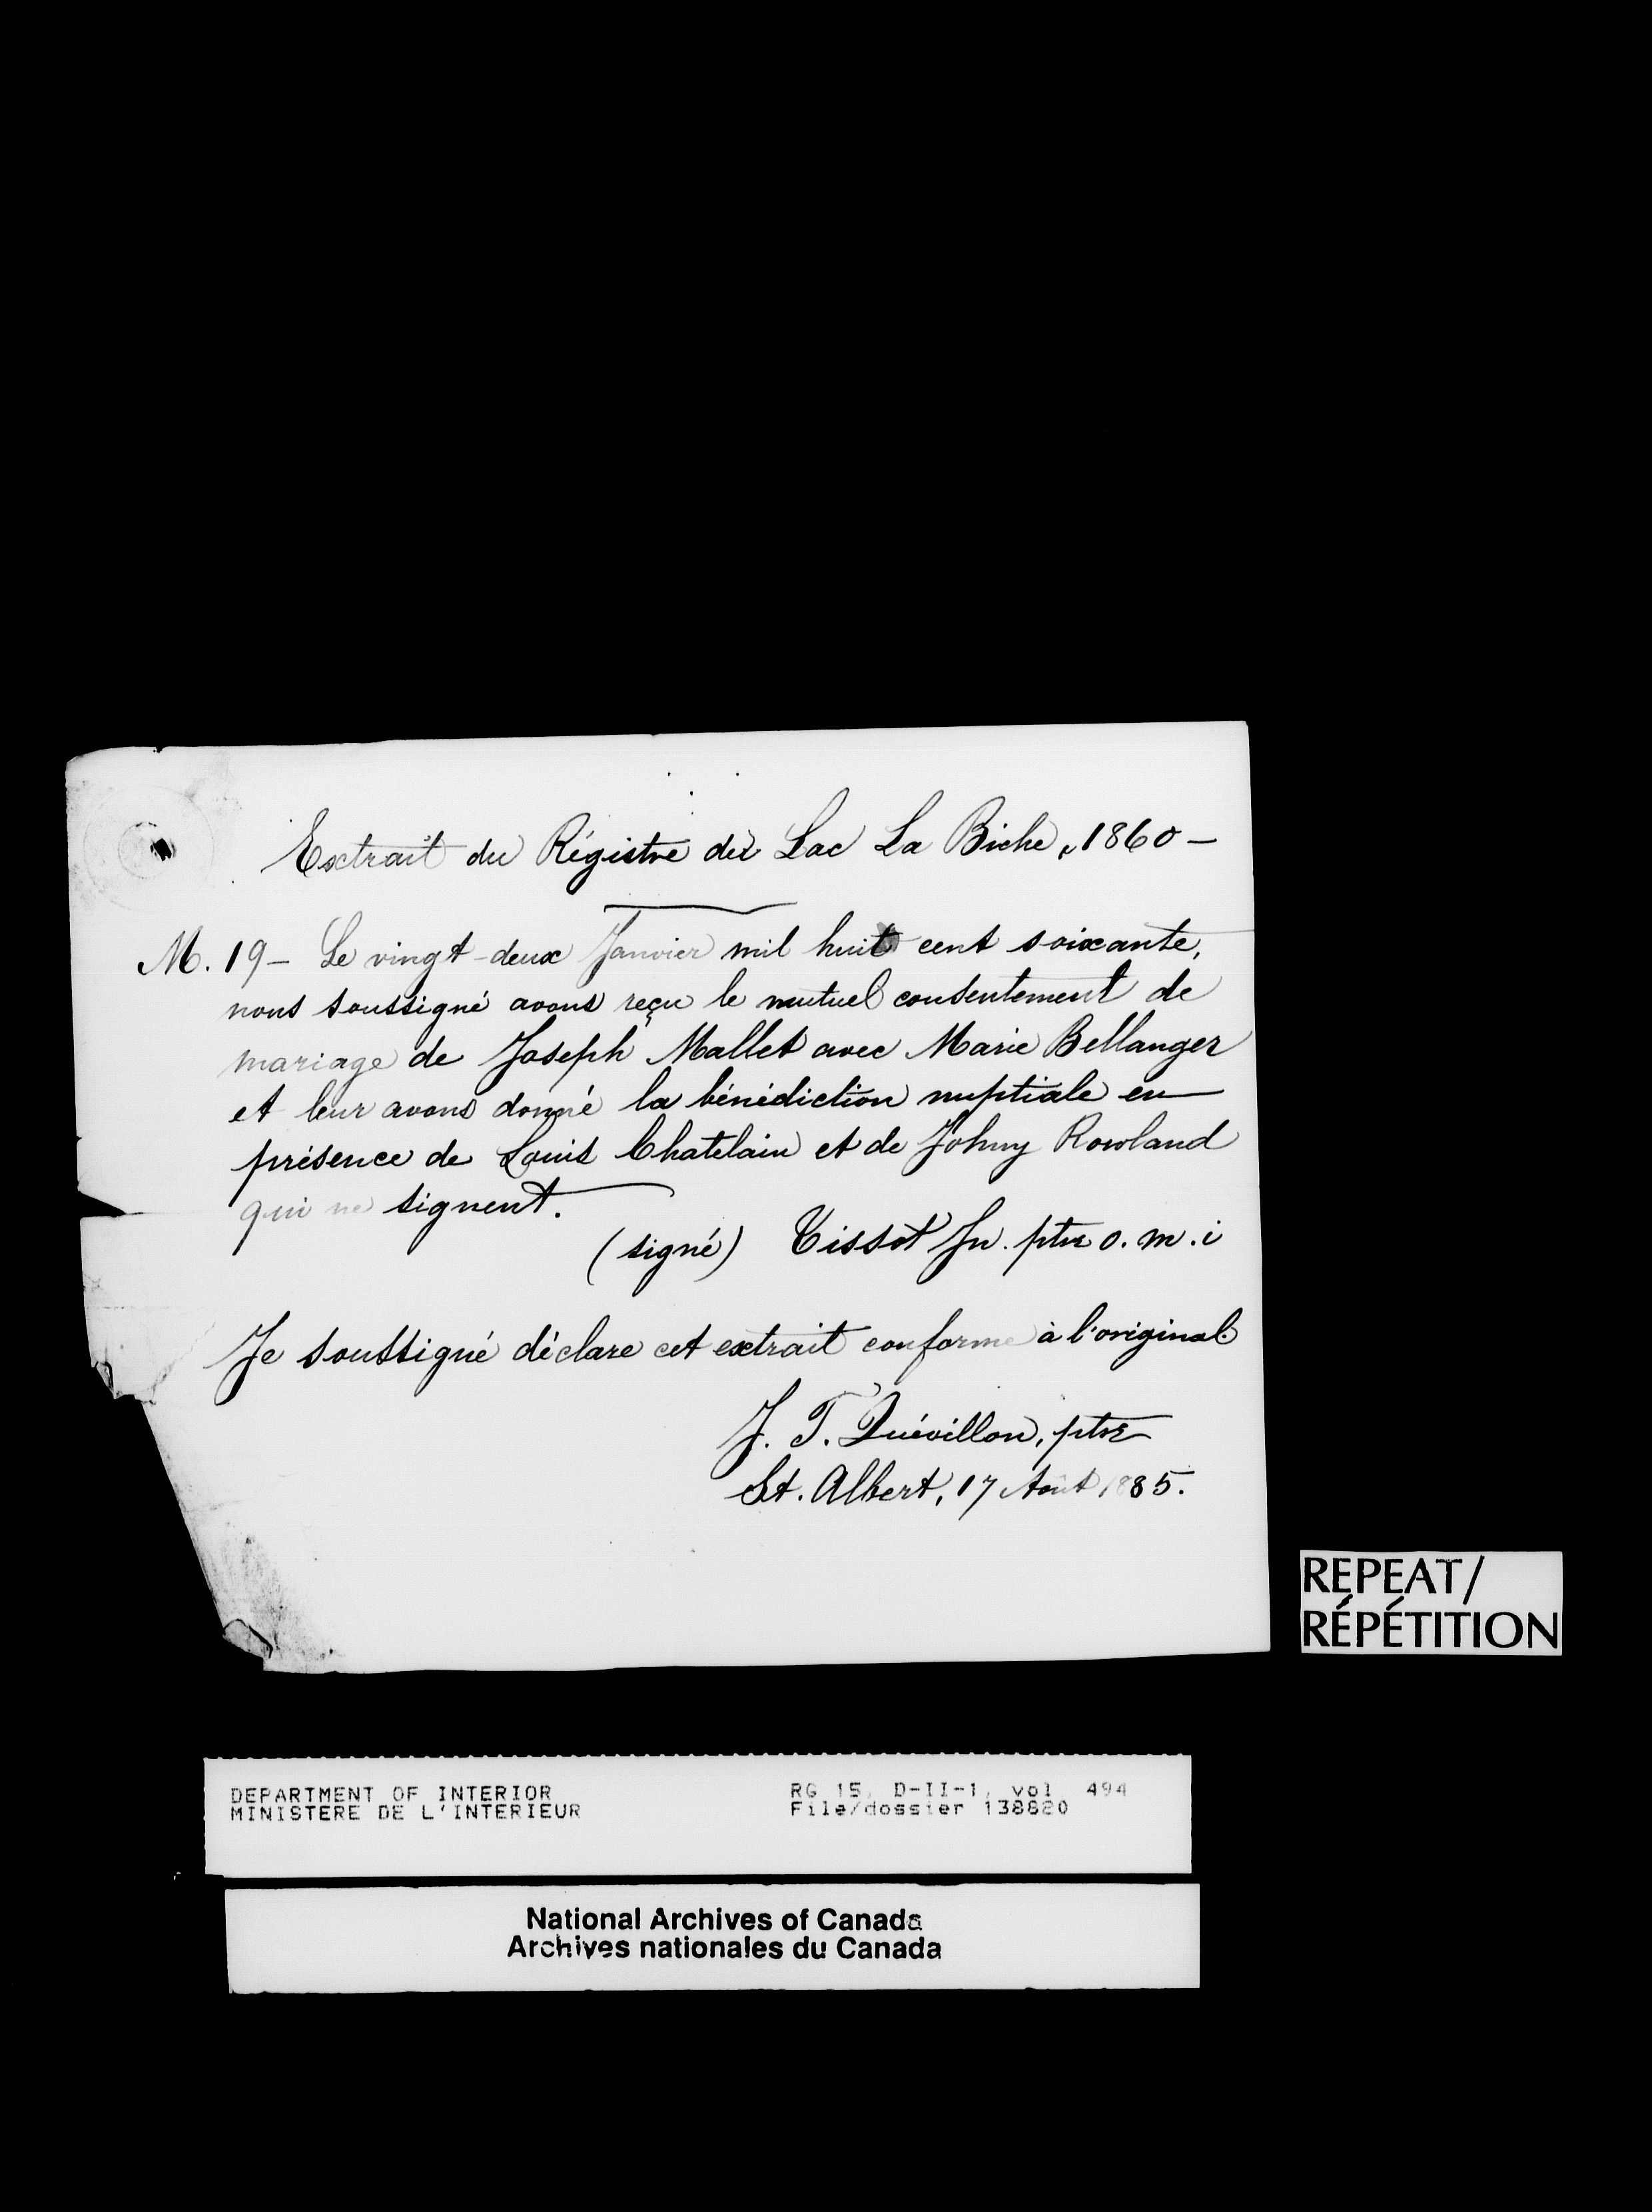 Extrait du Régistre du Lac La Biche, 1860 —
M. 19 — Le vingt-deux Janvier mil huit cent soixante,
nous soussigné avons reçu le mutuel consentement de
mariage de Joseph Mallet avec Marie Bellanger
et leur avons donné la bénédiction nuptiale en
présence de Louis Chatelain et de Johny Rowland
qui ne signent.
(signé) Tissot Jn. ptre o.m.i
Je soussigné déclare cet extrait conforme à l'original
J. T. Quévillon, ptre
St. Albert, 17 Août 1885.
REPEAT/
RÉPÉTITION
DEPARTMENT OF INTERIOR RG 15, D-II-1, vol 494
MINISTERE DE L'INTERIEUR File/dossier 138820
National Archives of Canada
Archives nationales du Canada